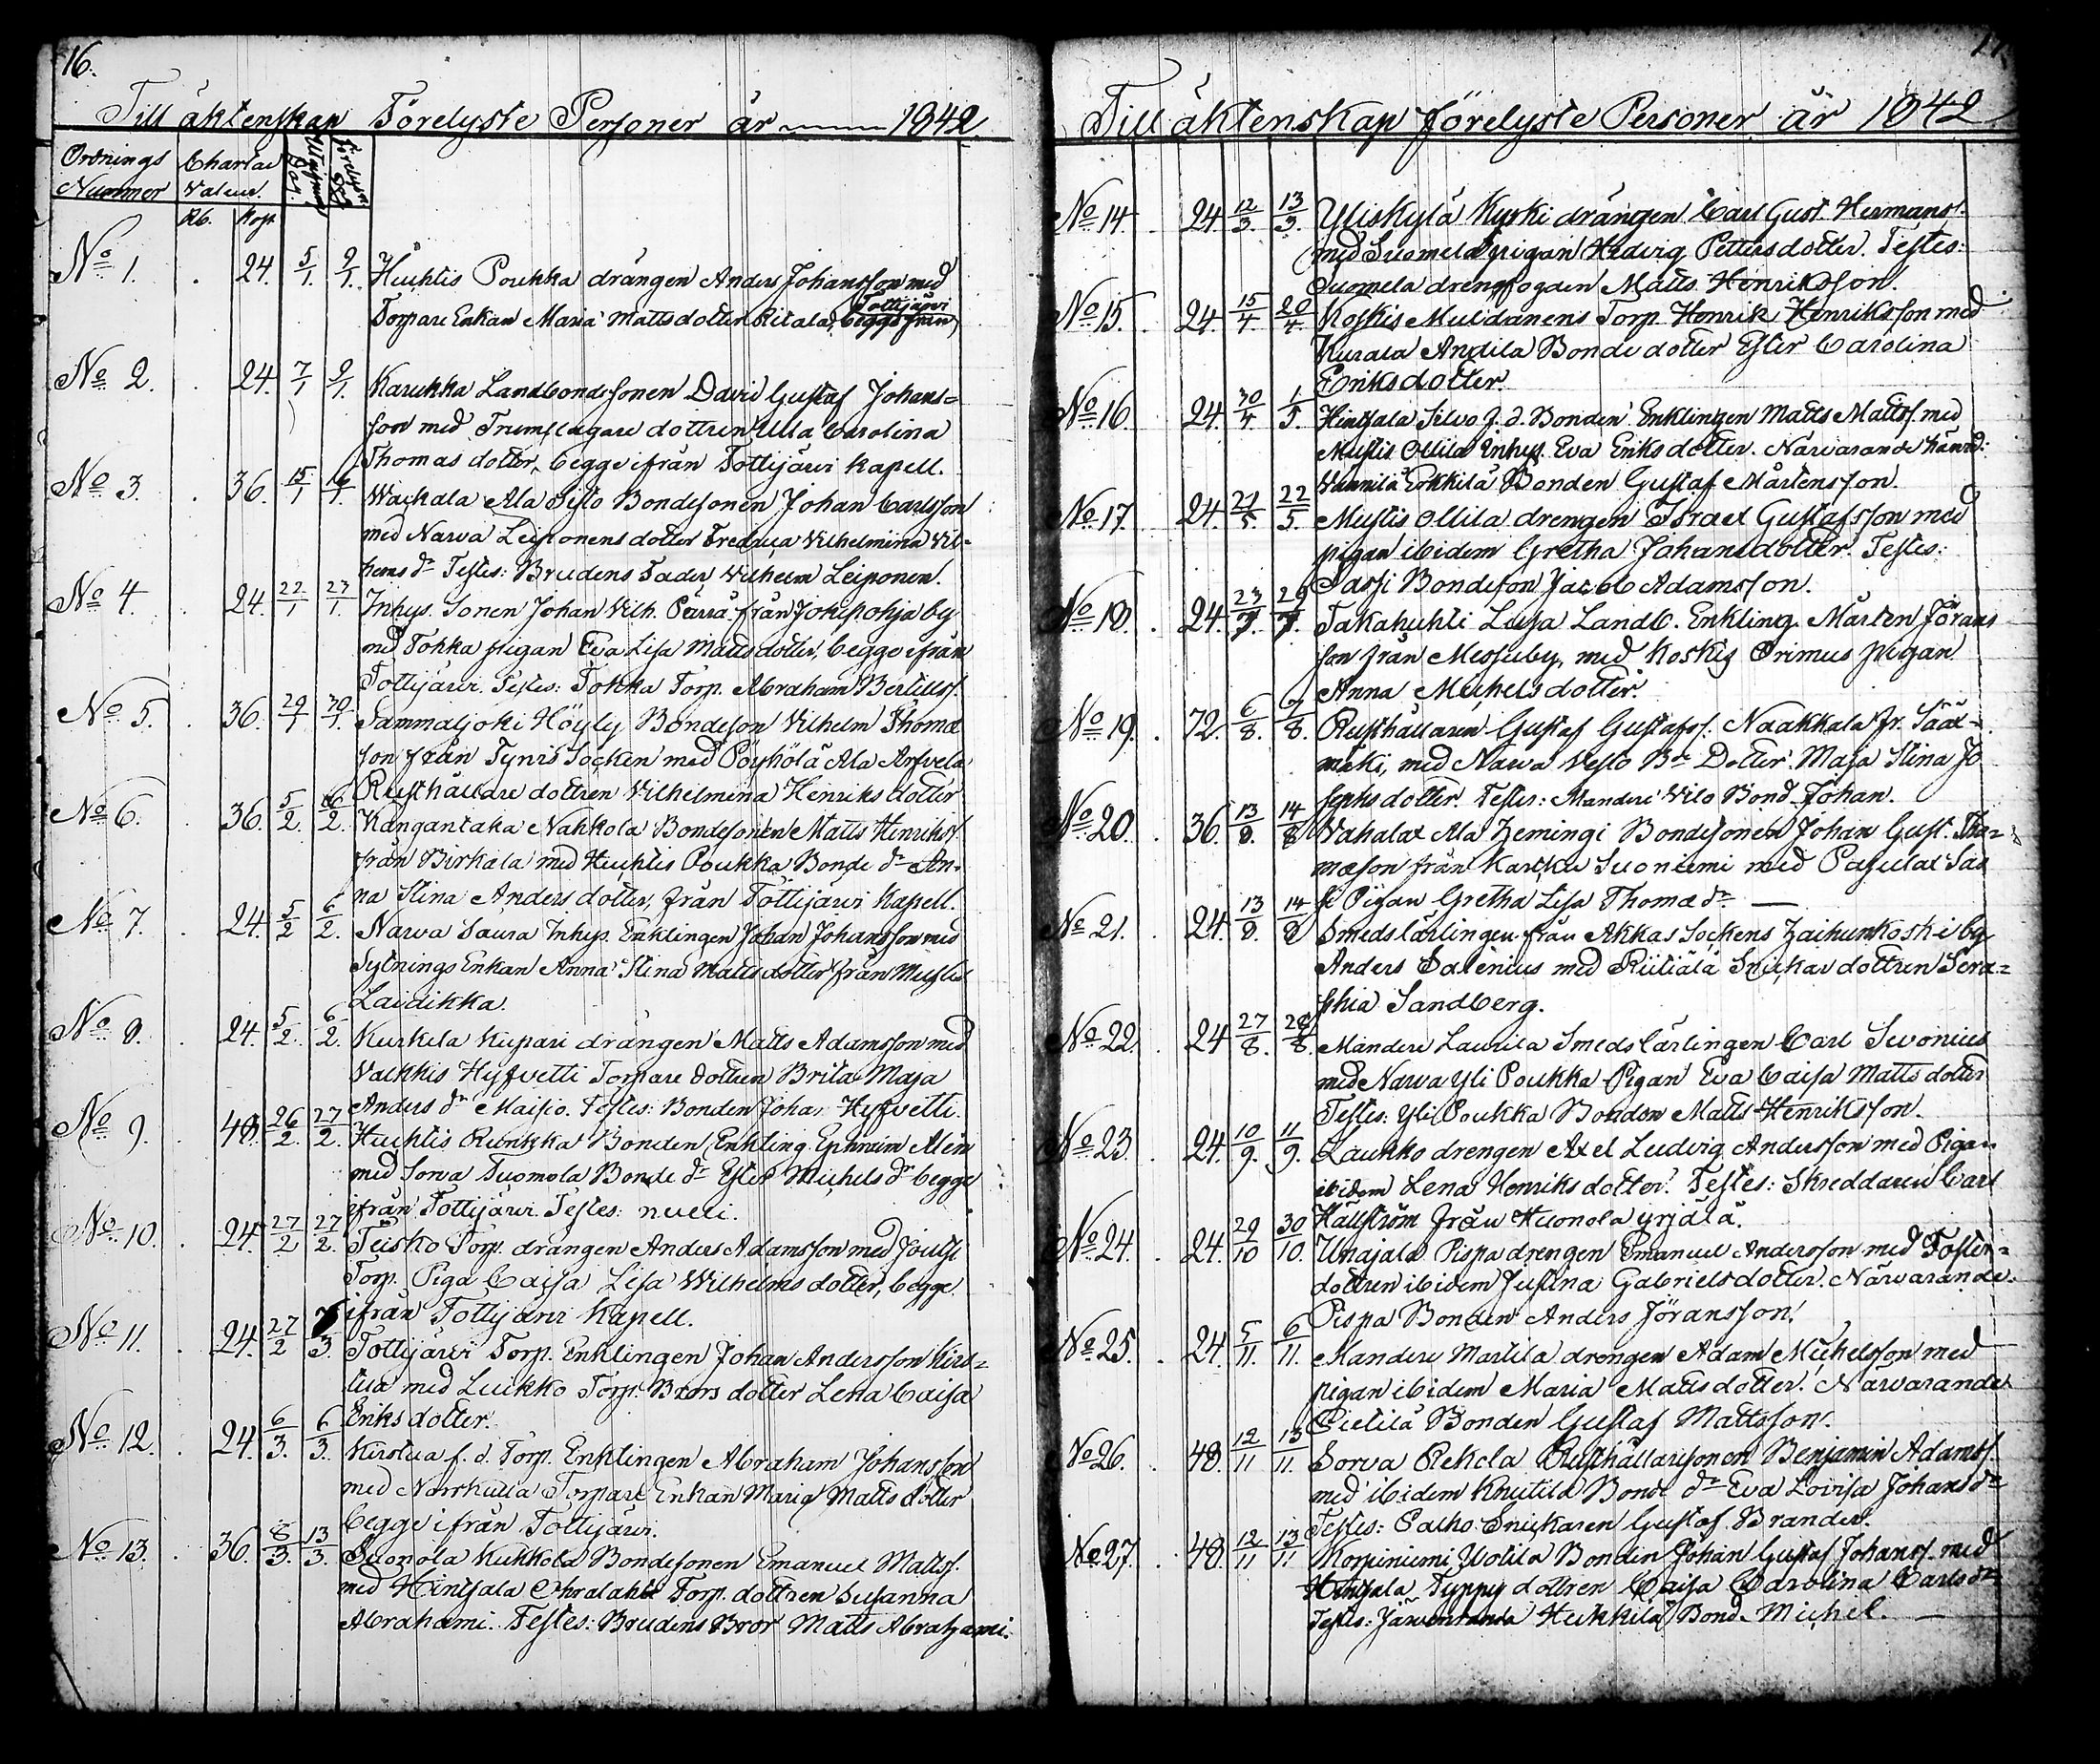 16.
Till äktenskap Förelyste Personer år 1842
Ordnings Nummer
Chartae Valeur.
Rb. Kop.
No 1. 24. 5/1. 9/1. Huhtis Poukka drängen Anders Johansson med
Torpare Enkan Maria Mattsdotter Ritala, begge från
Tottijärvi
No 2. 24. 7/1 9/1. Karukka Landbondesonen David Gustaf Johans=
son med Trumslagare dottren Ulla Carolina
Thomas dotter, begge ifrån Tottijärvi Kapell.
No 3. 36. 15/1 16/1. Waikala Ala Sisto Bondesonen Johan Carlsson
med Narva Leiponens dotter Fredrica Vilhelmina Vil-
helms dr Testes: Brudens Fader Vilhelm Leiponen.
No 4. 24. 22/1 23/1. Inhys. Sonen Johan Vilh. Pärrä från Jokipohja by
med Tokka pigan Eva Lisa Matts dotter, begge ifrån
Tottijärvi. Testes: Tokka Torp. Abraham Bertills.
No 5. 36. 29/1 30/1. Sammaljoki Höyly Bondeson Vilhelm Thomæ
son från Tyrvis Socken med Pöyhölä Ala Arfvela
Rusthållare dottren Vilhelmina Henriks dotter
No 6. 36. 5/2. 6/2. Kangantaka Nahkola Bondesonen Matts Henrikss.
från Birkala med Huhtis Poukka Bonde dr An-
na Stina Anders dotter, från Tottijärvi Kapell.
No 7. 24. 5/2 6/2. Narva Saura Inhys. Enklingen Johan Johansson med
Sytnings Enkan Anna Stina Matts dotter från Mustis
Laidikka.
No 8. 24. 5/2. 6/2. Kurkela Kupari drängen Matts Adamsson med
Valkkis Hyfvetti Torpare dottren Brita Maja
Anders dr Maisio. Testes: Bonden Johan Hyfvetti.
No 9. 48. 26/2. 27/2. Huhtis Runkka Bonden Enkling Ephraim Alén
med Sorva Tuomola Bonde dr Ester Michels dr begge
ifrån Tottijärvi. Testes: nulli.
No 10. 24. 27/2 27/2. Teisko Torp. drängen Anders Adamsson med
Torp. Piga Caisa Lisa Wilhelms dotter, begge
ifrån Tottijärvi Kapell.
No 11. 24. 27/2 /3. Tottijärvi Torp. Enklingen Johan Andersson Kirs=
tua med Luikko Torp. Brors dotter Lena Caisa
Eriks dotter.
No 12. 24. 6/3. 6/3. Kirstua f. d. Torp. Enklingen Abraham Johansson
med Norrkulla Torpare Enkan Maria Matts dotter
begge ifrån Tottijärvi.
No 13. 36. 8/3. 13/3. Suonola Kukkola Bondesonen Emanuel Mattss.
med Hintsala Torp. dottren Susanna
Abrahami. Testes: Brudens Bror Matts Abrahami.
17
Till äktenskap förelyste Personer år 1842
No 14. 24 12/3. 13/3. Yliskylä Kyrki drängen Carl Gust. Hermans.
med Suomela pigan Hedvig Petters dotter. Testes:
Suomela drengfogden Matts Henriksson.
No 15. 24. 15/4. 20/4. Koskis Muldanens Torp. Henrik Henriksson med
Kurala Anttila Bonde dotter Ester Carolina
Eriksdotter.
No 16 24. 30/4. 1/5. Hintsala Silvo f. d. Bonden Enklingen Matts Mattss. med
Mustis Ollila Inhys. Eva Eriks dotter. Närvarande
Vannilä Erkkilä Bonden Gustaf Mårtensson.
No 17. 24. 21/5. 22/5. Mustis Ollila drengen Israel Gustafsson med
pigan ibidem Gretha Johansdotter. Testes:
Sassi Bondeson Jacob Adamsson.
No 18. 24. 23/7. 29/7. Takahuhti Landb. Enkling Mårten Jörans
son från Messuby, med Koskis Orimus pigan
Anna Michels dotter.
No 19. 72. 6/8. 7/8. Rusthållaren Gustaf Gustafss. Naakkala fr. Sääx=
mäki, med Narva Vesto Bde Dotter Maja Stina Jo
sephs dotter. Testes: Mandere Vilo Bond. Johan.
No 20. 36. 13/8. 14/8 Vahalax Ala Hemingi Bondesonen Johan Gust. Tho=
mæson från Karkku Suoniemi med Pajulax Sas
si Pigan Gretha Lisa Thomæ dr —
No 21. 24. 13/8. 14/8 Smeds lärlingen från Akkas Sockens Haihunkoski by
Anders Salenius med Riitiälä Snickar dottren Sera=
phia Sandberg.
No 22. 24 27/8. 28/8. Mandere Laurila Smeds lärlingen Carl Sevonius
med Narva Yli Poukka Pigan Eva Caisa Matts dotter
Testes: Yli Poukka Bonden Matts Henriksson.
No 23. 24. 10/9. 11/9. Laukko drengen Axel Ludvig Andersson med Pigan
ibidem Lena Henriks dotter. Testes: Skreddaren Carl
Hällström från Huonola yrjälä.
No 24. 24. 29/10 30/10. Unajala Pispa drengen Emanuel Andersson med Foster=
dottren ibidem Justina Gabrielsdotter. Närvarande:
Pispa Bonden Anders Jöransson.
No 25. 24. 5/11. 6/11. Mandere Marttila drengen Adam Michelsson med
pigan ibidem Maria Matts dotter. Närvarande
Pietilä Bonden Gustaf Mattsson.
No 26. 48. 12/11 13/11. Sorva Rekola Rusthållaresonen Benjamin Adamss.
med ibidem Knutila Bonde dr Eva Lovisa Johans dr
Testes: Palho Snickaren Gustaf Brander.
No 27. 48. 12/11 13/11 Korpiniemi Uotila Bonden Johan Gustaf Johanss. med
Hintsala Typpy dottren Caisa Carolina Carls dr
Testes: Järvenranda Heikkilä Bond. Michel. —